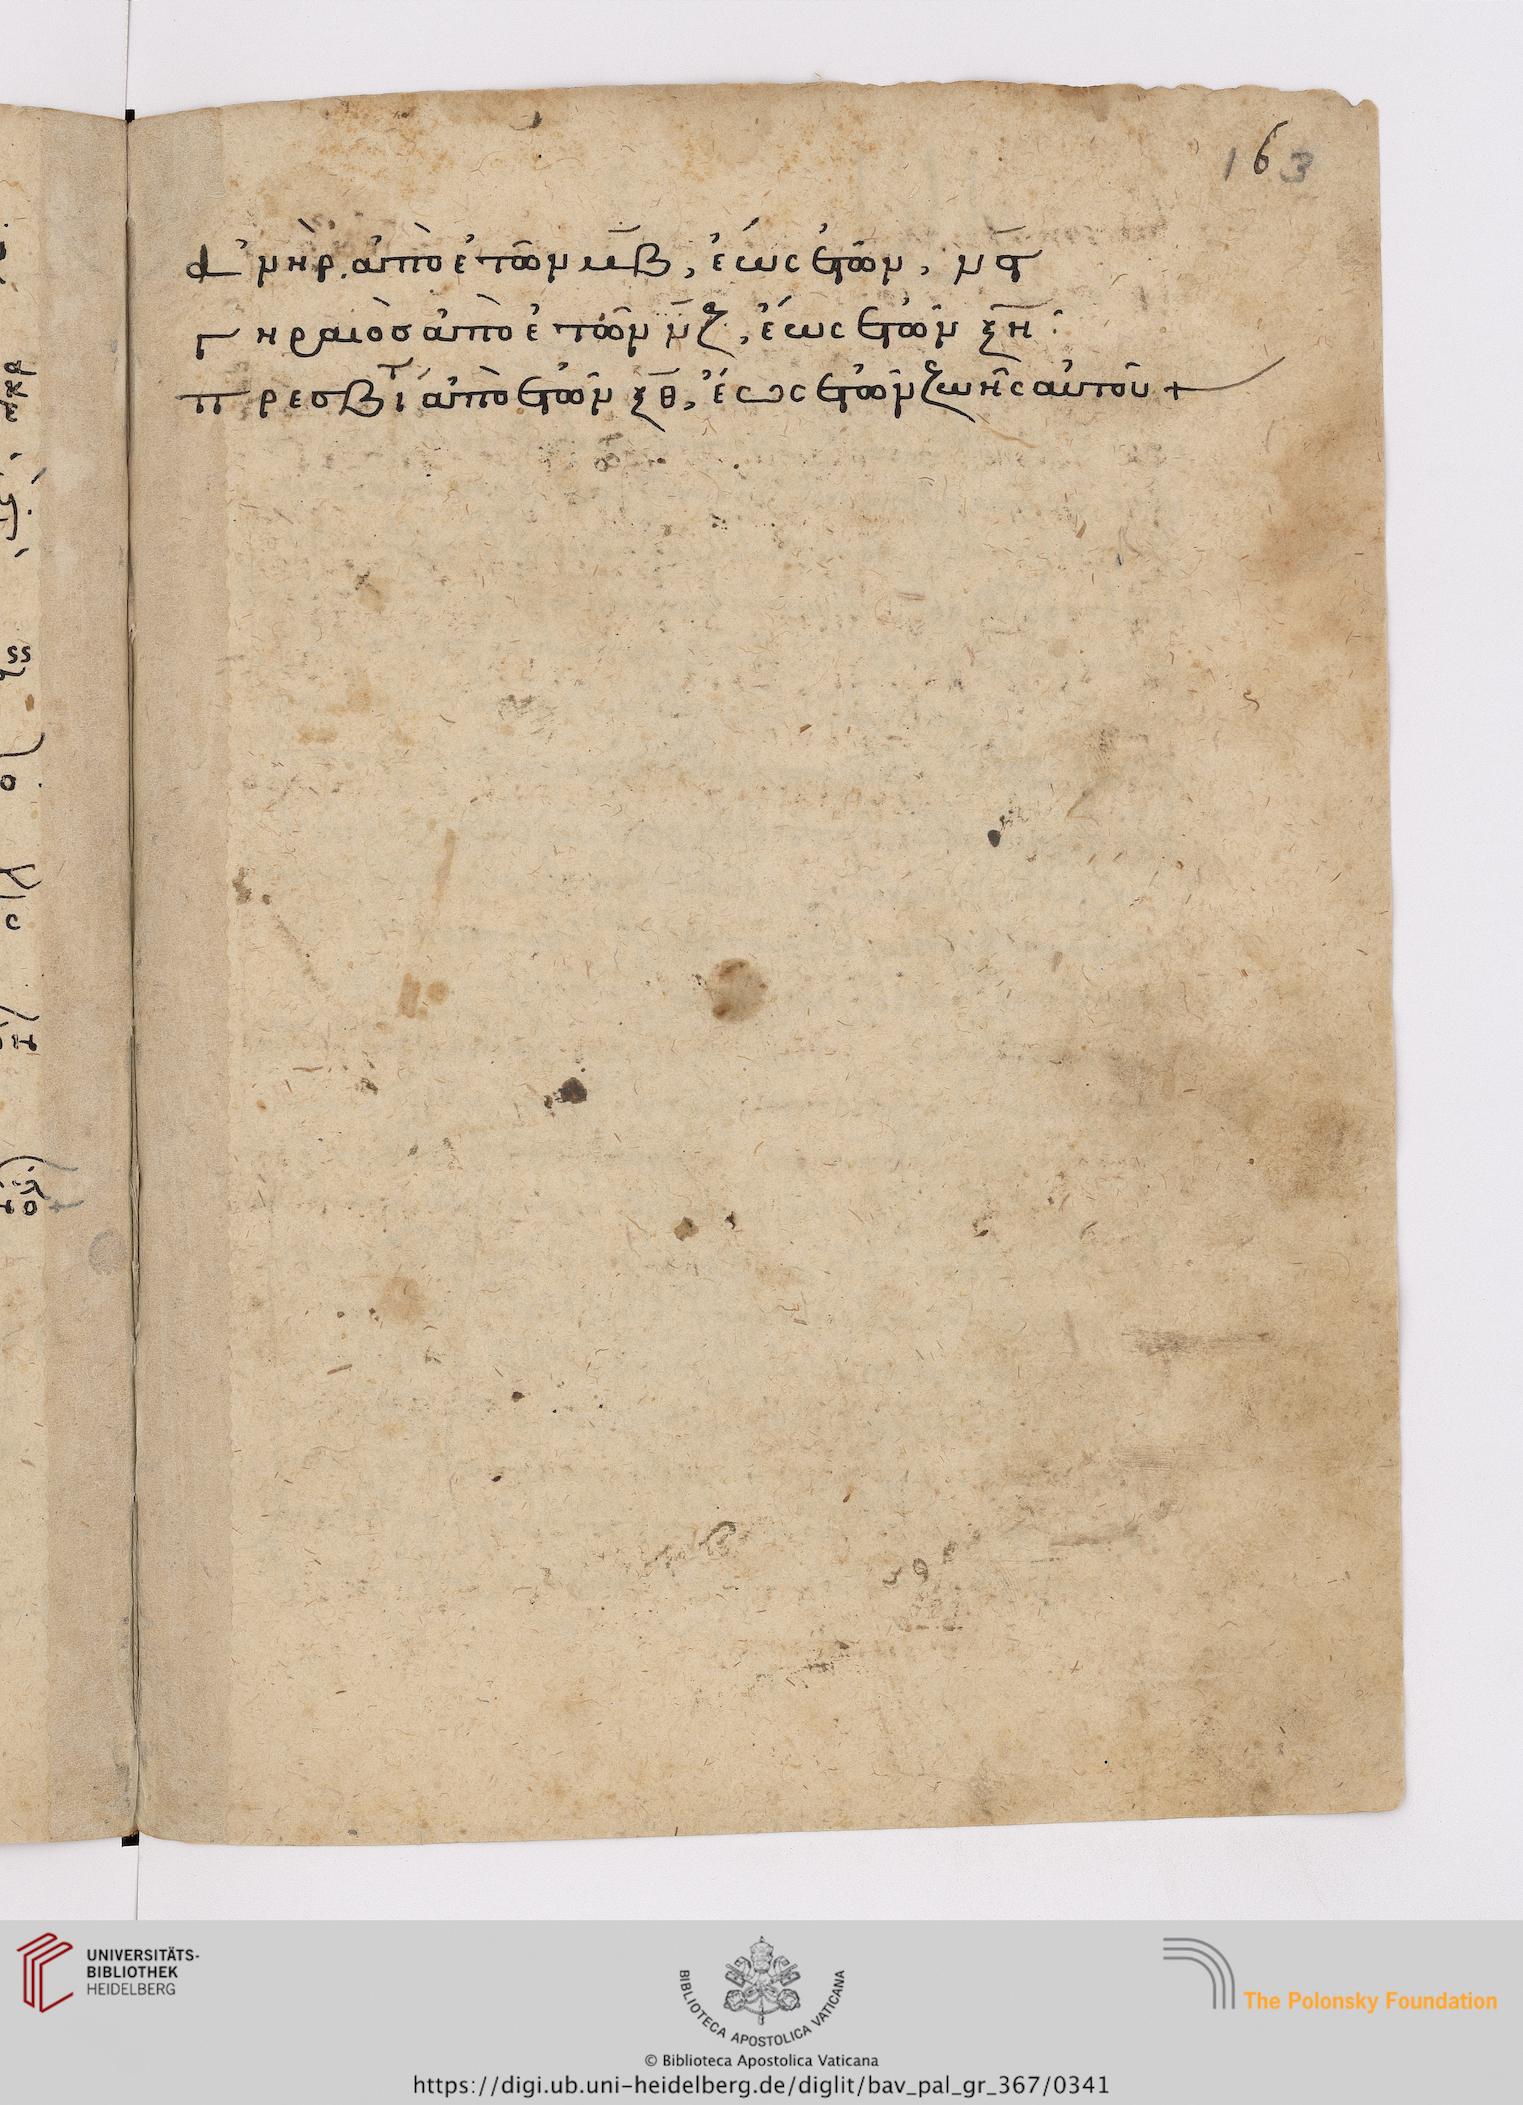 163
ἀνὴρ ἀπὸ ἐτῶν μ̅β, ἕως ἐτῶν, ν̅ϛ
γηραιὸσ ἀπὸ ἐτῶν ν̅ζ, ἕως ἐτῶν ξ̅η:
πρεσβύτ ἀπὸ ἐτῶν ξ̅θ, ἕως ἐτῶν ζωῆς αὐτοῦ +
UNIVERSITÄTS-
BIBLIOTHEK
HEIDELBERG
BIBLIOTECA APOSTOLICA VATICANA
The Polonsky Foundation
© Biblioteca Apostolica Vaticana
https://digi.ub.uni-heidelberg.de/diglit/bav_pal_gr_367/0341